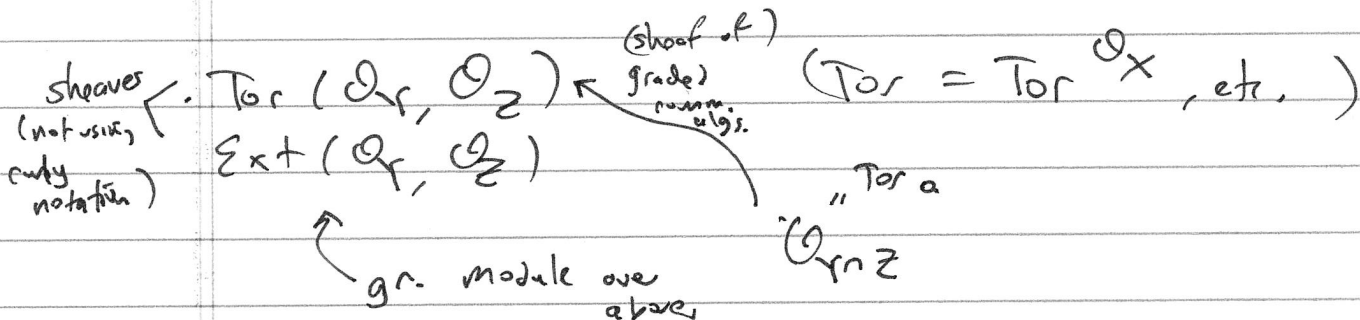 sheaves (not using curly notation)
· Tor (O_Y, O_Z) (sheaf of) graded comm. algs. (Tor = Tor^{O_X}, etc.)
Ext (O_Y, O_Z)
" Tor_0
O_{Y∩Z}
gr. module over above